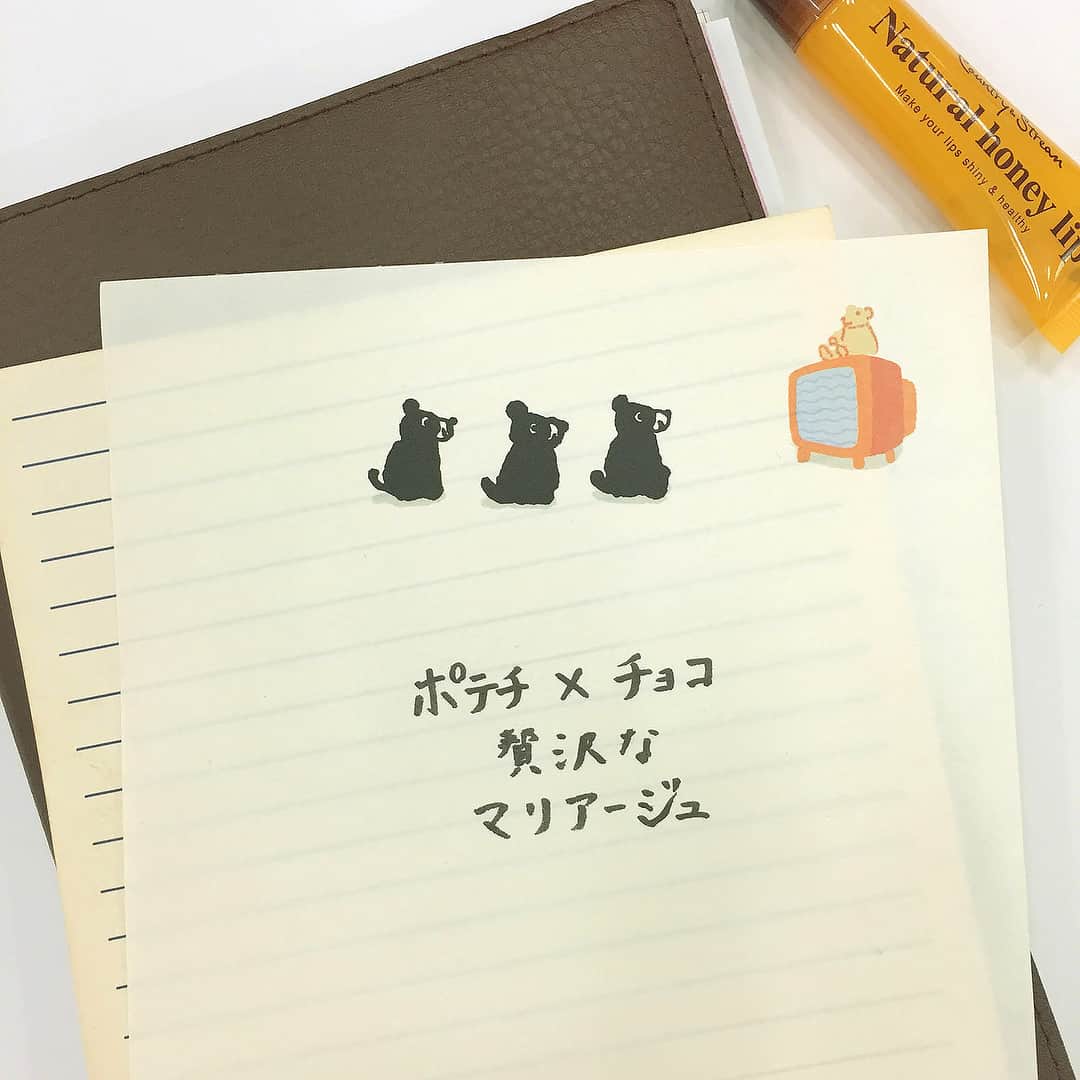 Country & Stream
Natural honey lip
Make your lips shiny & healthy
ポテチ×チョコ
贅沢な
マリアージュ